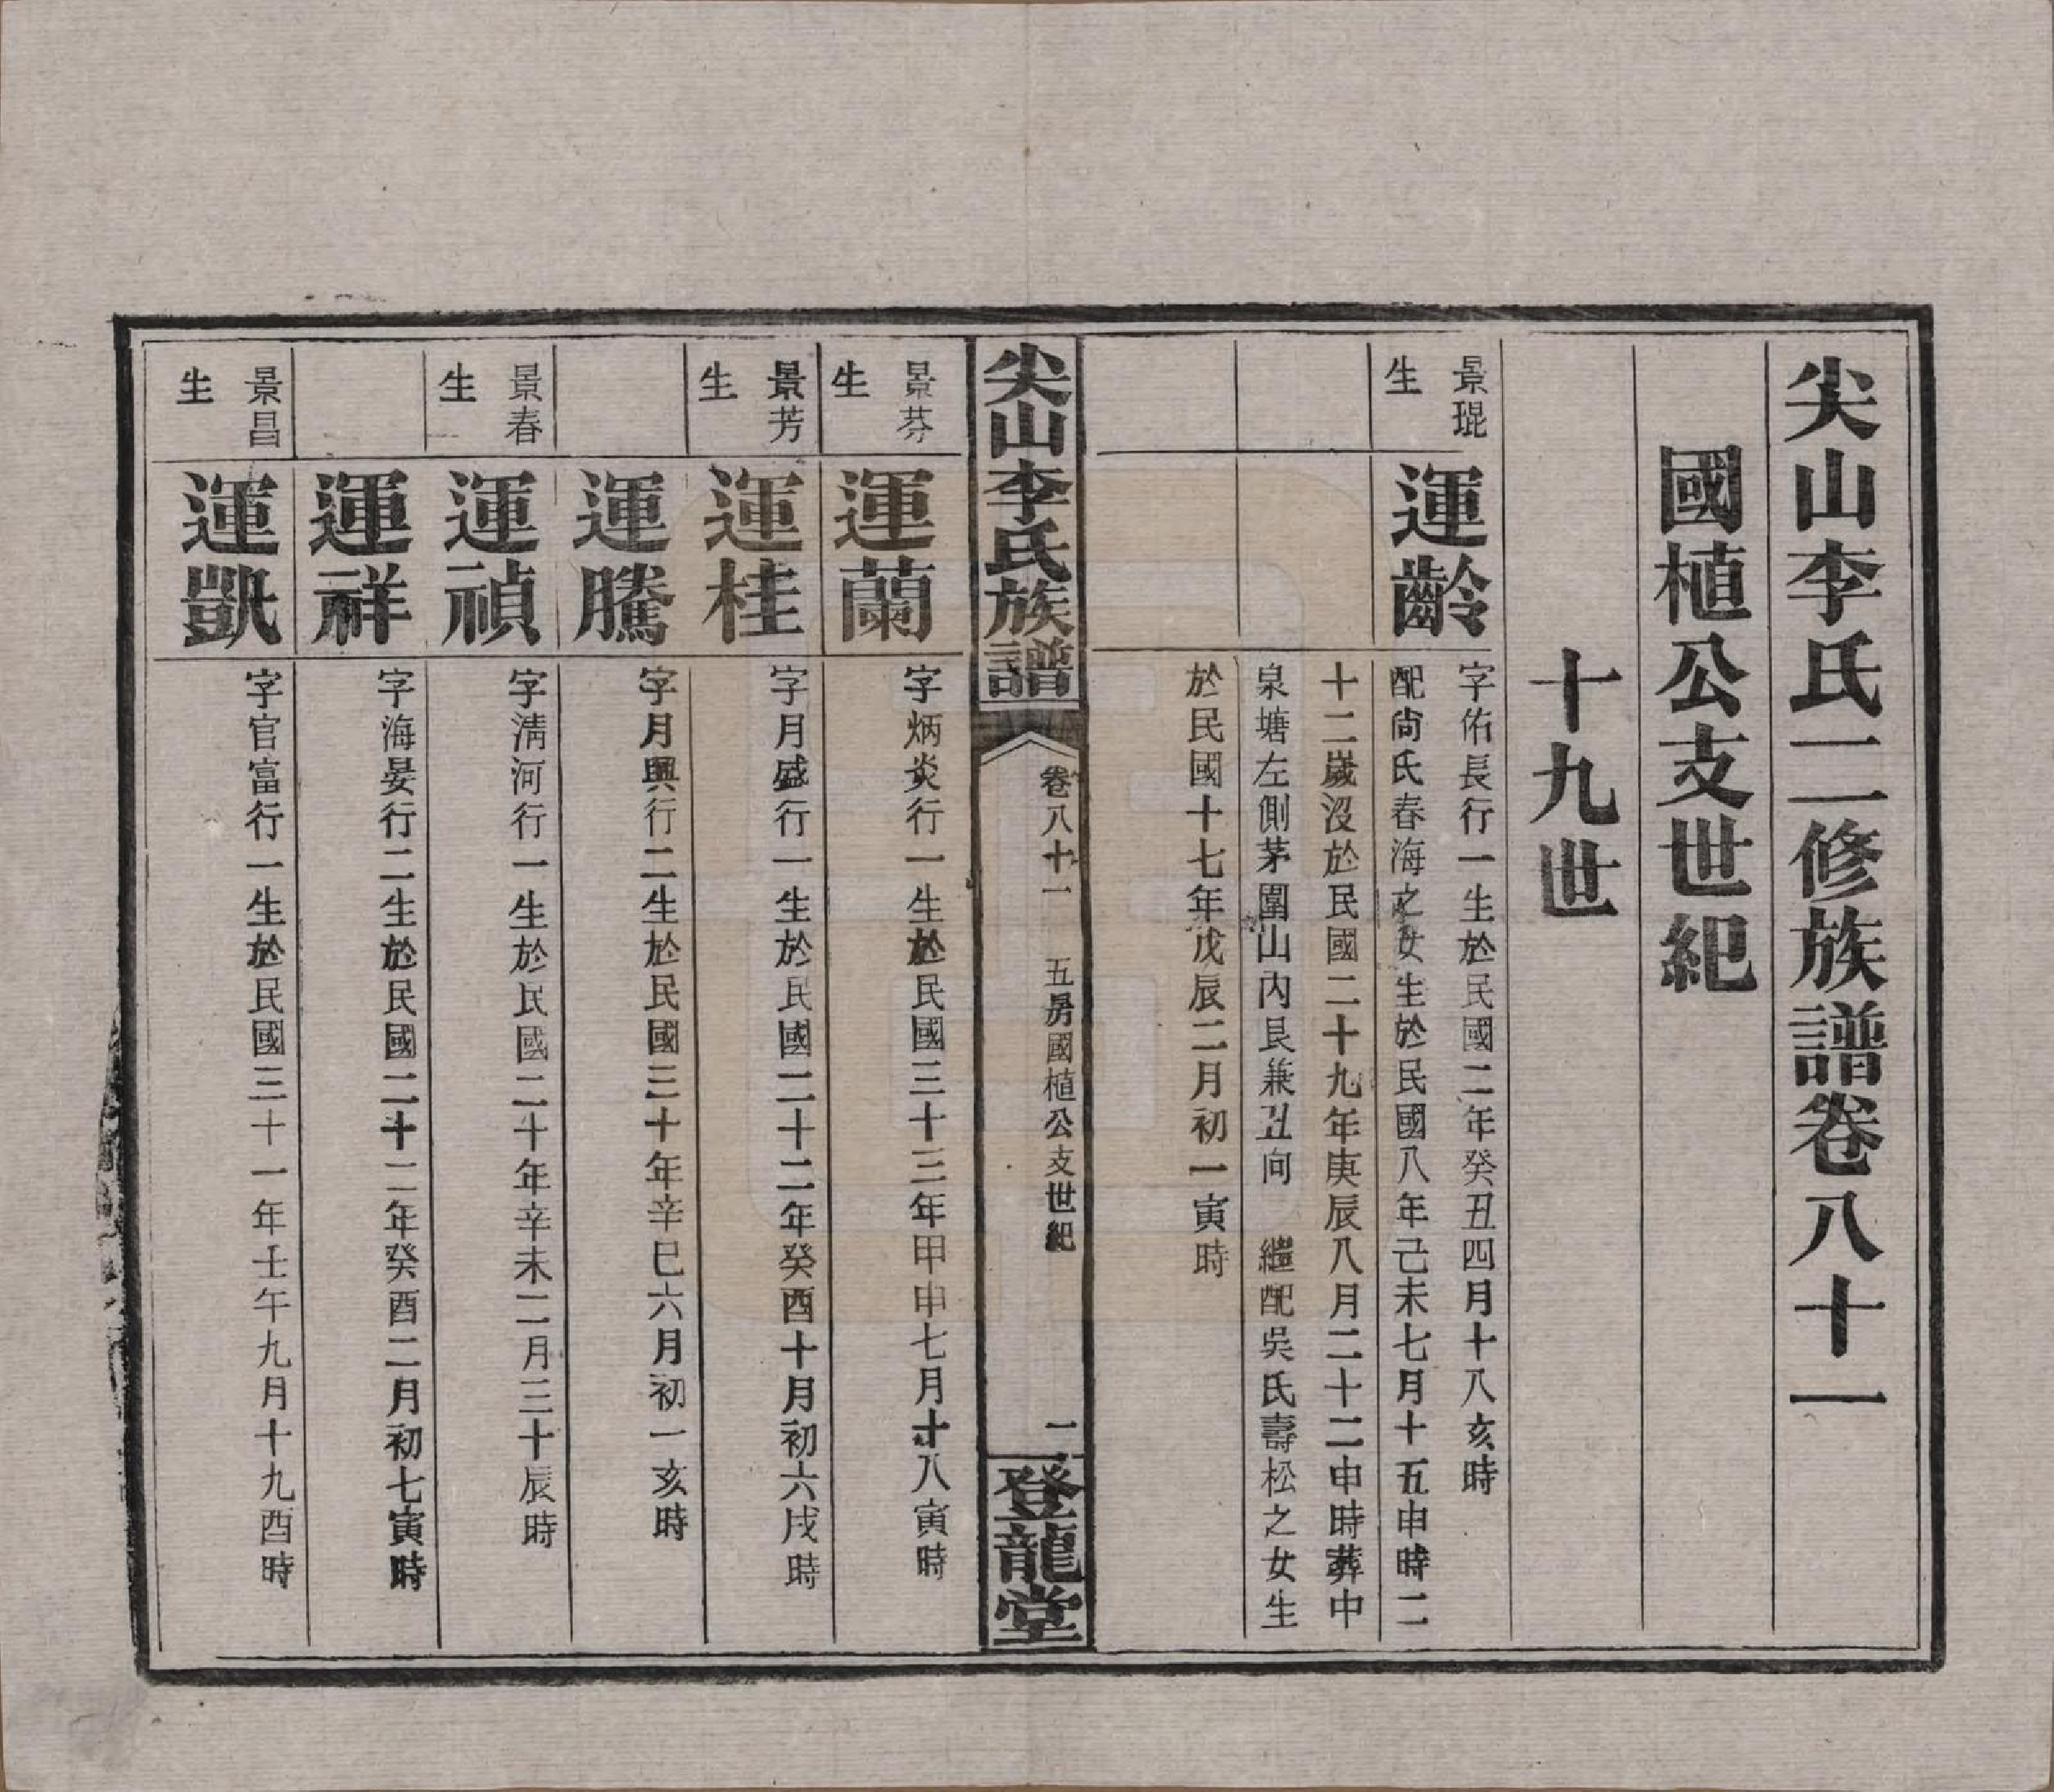 尖山李氏二修族譜卷八十一
國植公支世紀
十九世
景琨
生
運齡
字佑長行一生於民國二年癸丑四月十八亥時
配尙氏春海之女生於民國八年己未七月十五申時二
十二歲沒於民國二十九年庚辰八月二十二申時葬中
泉塘左側茅圍山內艮兼丑向 繼配吳氏壽松之女生
於民國十七年戊辰二月初一寅時
尖山李氏族譜
卷八十一 五房國植公支世紀
一
登龍堂
景芬
生
運蘭
字炳炎行一生於民國三十三年甲申七月十八寅時
景芳
生
運桂
字月盛行一生於民國二十二年癸酉十月初六戌時
運騰
字月興行二生於民國三十年辛巳六月初一亥時
景春
生
運禎
字淸河行一生於民國二十年辛未二月三十辰時
運祥
字海晏行二生於民國二十二年癸酉二月初七寅時
景昌
生
運凱
字官富行一生於民國三十一年壬午九月十九酉時